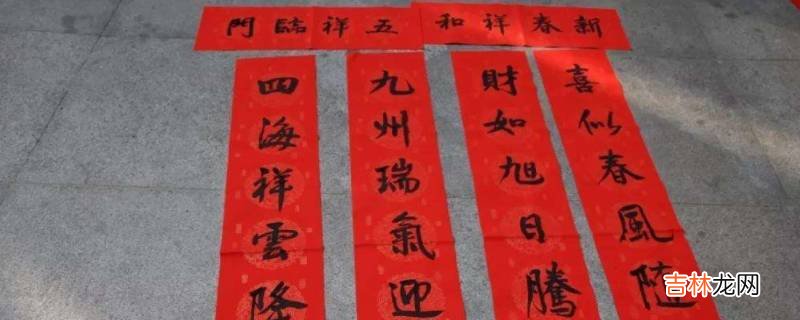 新春祥和
五祥臨門
喜似春風隨
財如旭日騰
九州瑞氣迎
四海祥雲降
吉林龙网